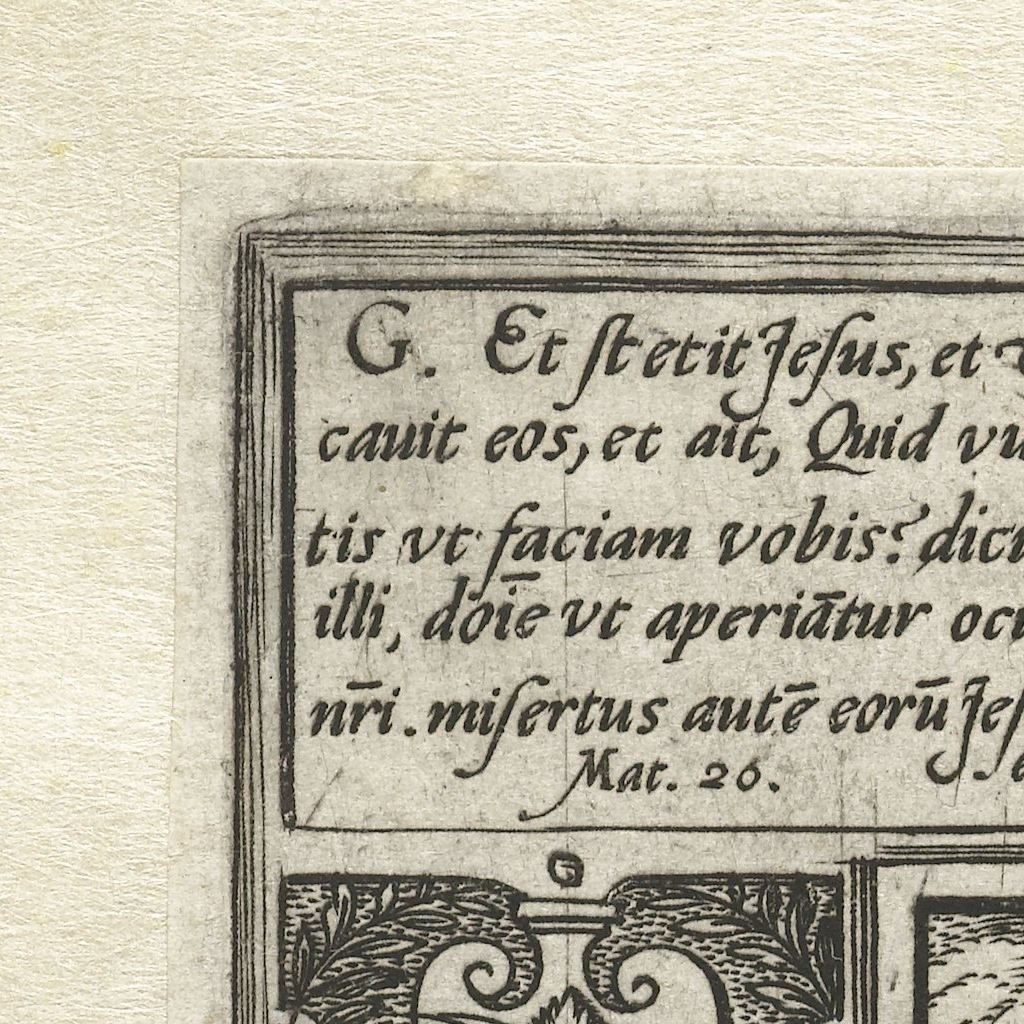 G. Et stetit Jesus, et
cauit eos, et ait, Quid vu
tis vt faciam vobis? dicu
illi, doiē vt aperiātur ocu
nr̄i. misertus autē eorū Jes
Mat. 26.
G